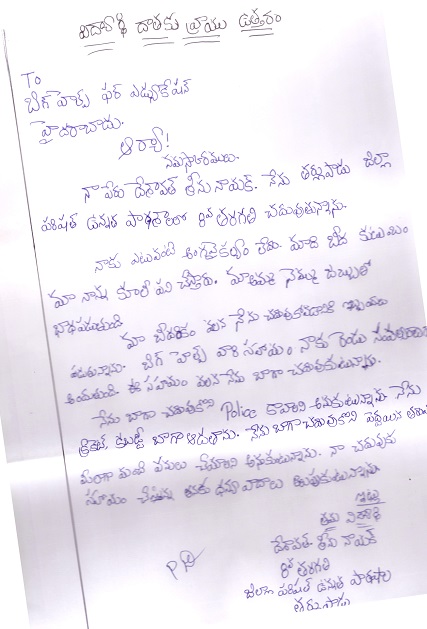 విద్యార్థి దాతకు వ్రాయు ఉత్తరం
To
బిగ్ హెల్ప్ ఫర్ ఎడ్యుకేషన్
హైదరాబాదు.
ఆర్యా!
నమస్కారములు.
నా పేరు దేశావత్ శీను నాయక్. నేను తర్లుపాడు జిల్లా
పరిషత్ ఉన్నత పాఠశాలలో 8వ తరగతి చదువుతున్నాను.
నాకు ఎటువంటి అంగవైకల్యం లేదు. మాది బీద కుటుంబం
మా నాన్న కూలి పని చేస్తారు. మా అమ్మ నెమ్ము జబ్బుతో
బాధపడుతుంది
మా బీదరికం వలన నేను చదువుకోవడానికి ఇబ్బందులు
పడుతున్నాను. బిగ్ హెల్ప్ వారి సహాయం నాకు రెండు సంవత్సరాలుగా
అందుతుంది. ఈ సహాయం వలన నేను బాగా చదువుకుంటున్నాను.
నేను బాగా చదువుకొని Police కావాలని అనుకుంటున్నాను. నేను
క్రికెట్ కబడ్డీ బాగా ఆడతాను. నేను బాగా చదువుకొని పెద్దయిన తరువాత
మంచి పనులు చేయాలని అనుకుంటున్నాను. నా చదువుకు
సహాయం చేస్తున్న దాతకు ధన్యవాదాలు తెలుపుకుంటున్నాను.
ఇట్లు
తమ విద్యార్థి
దేశావత్ శీను నాయక్
8వ తరగతి
జిల్లా పరిషత్ ఉన్నత పాఠశాల
తర్లుపాడు